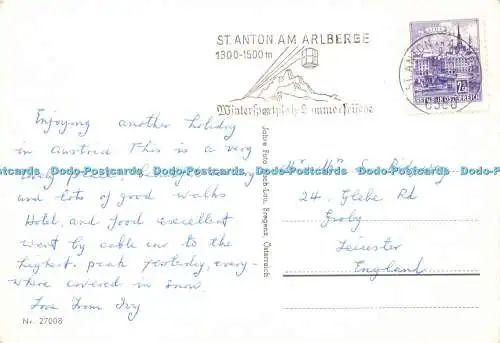 ST. ANTON AM ARLBERG
1300-1500 m
Wintersportplatz Sommerfrische
ST. ANTON
REPUBLIK ÖSTERREICH
Enjoying another holiday
in Austria This is a very
lovely place,
and lots of good walks
Hotel, and food excellent
went by cable car to the
highest peak yesterday, every-
where covered in snow.
Love from Ivy
Nr. 27008
Österreich
Mr & Mrs S.
24. Glebe Rd
Groby
Leicester
England
Dodo-Postcards Dodo-Postcards Dodo-Postcards Dodo-Postcards Dodo-Postcards Dodo-Postcards